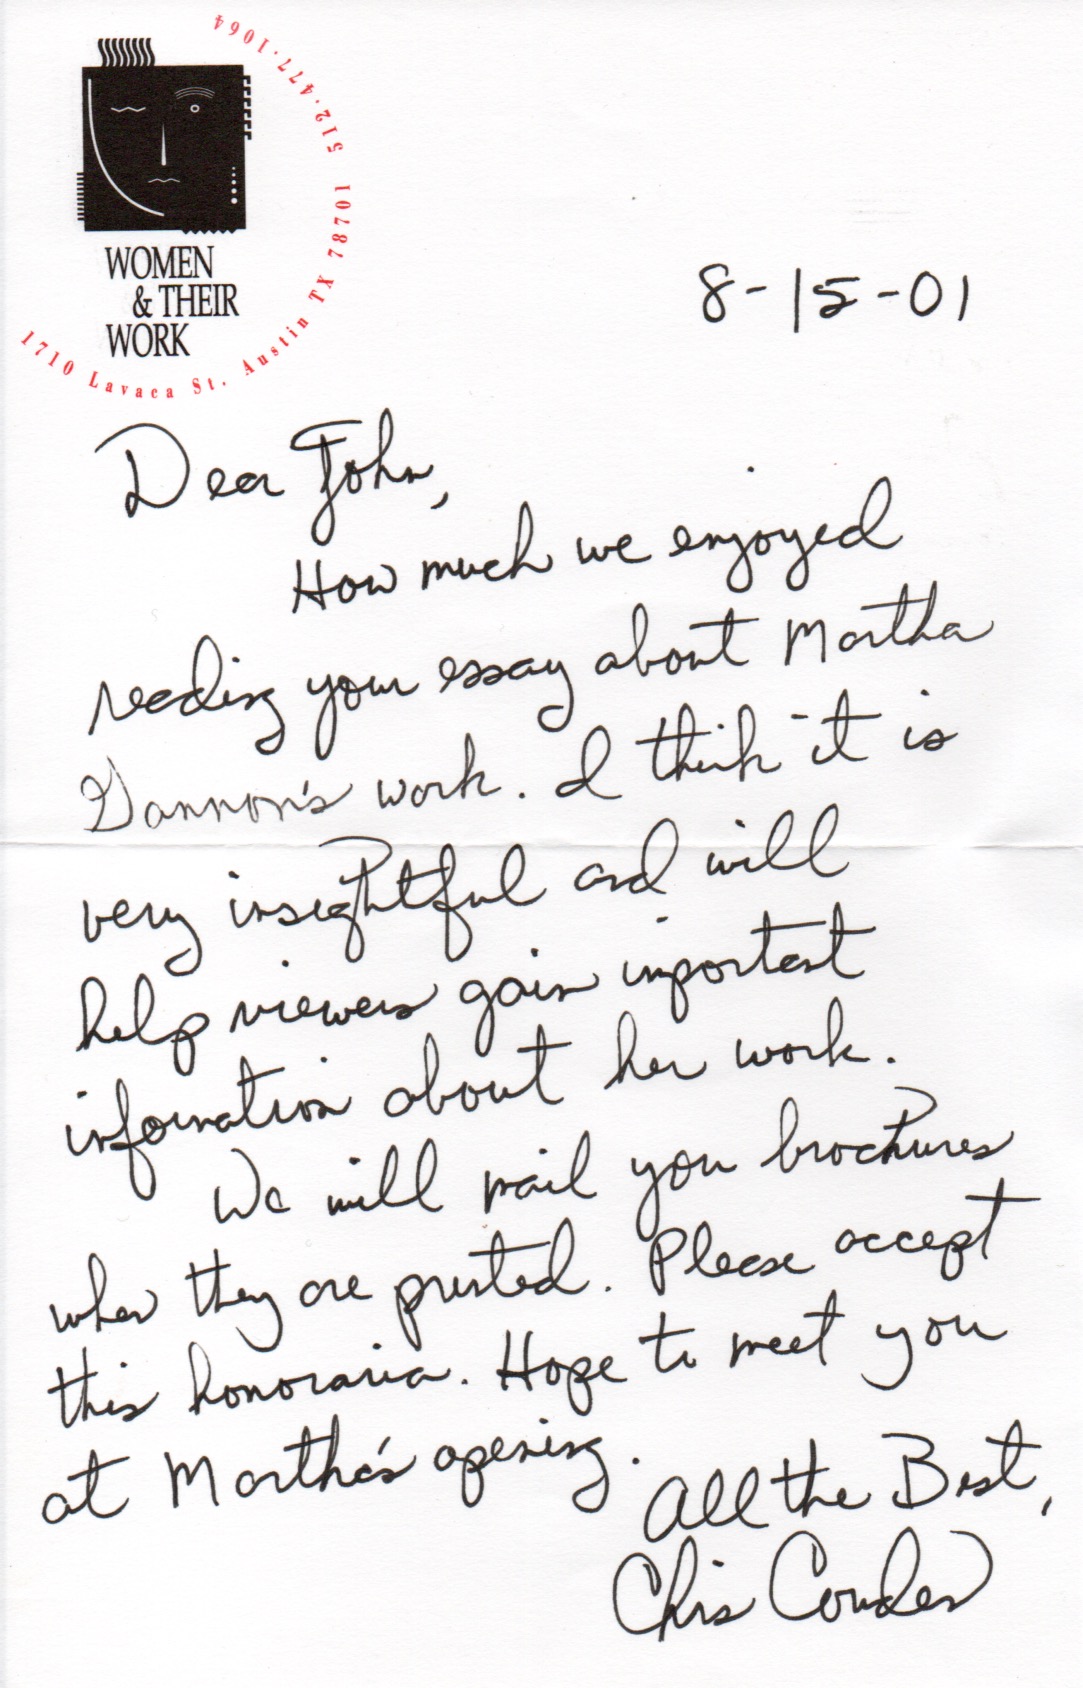 WOMEN
& THEIR
WORK
1710 Lavaca St. Austin TX 78701 512.477.1064
8-15-01
Dear John,
How much we enjoyed
reading your essay about Martha
Gannon's work. I think it is
very insightful and will
help viewers gain important
information about her work.
We will mail you brochures
when they are printed. Please accept
this honoraria. Hope to meet you
at Martha's opening.
All the Best,
Chris Cowden